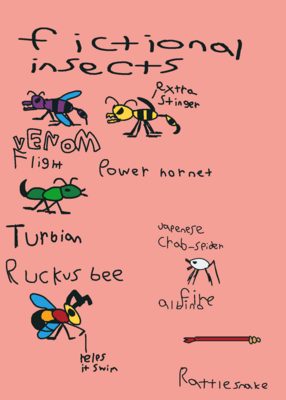 fictional
insects
extra
stinger
VENOM
flight
Power hornet
Turbian
Japenese
Crab-spider
Ruckus bee
fire
albino
helps
it swim
Rattlesnake